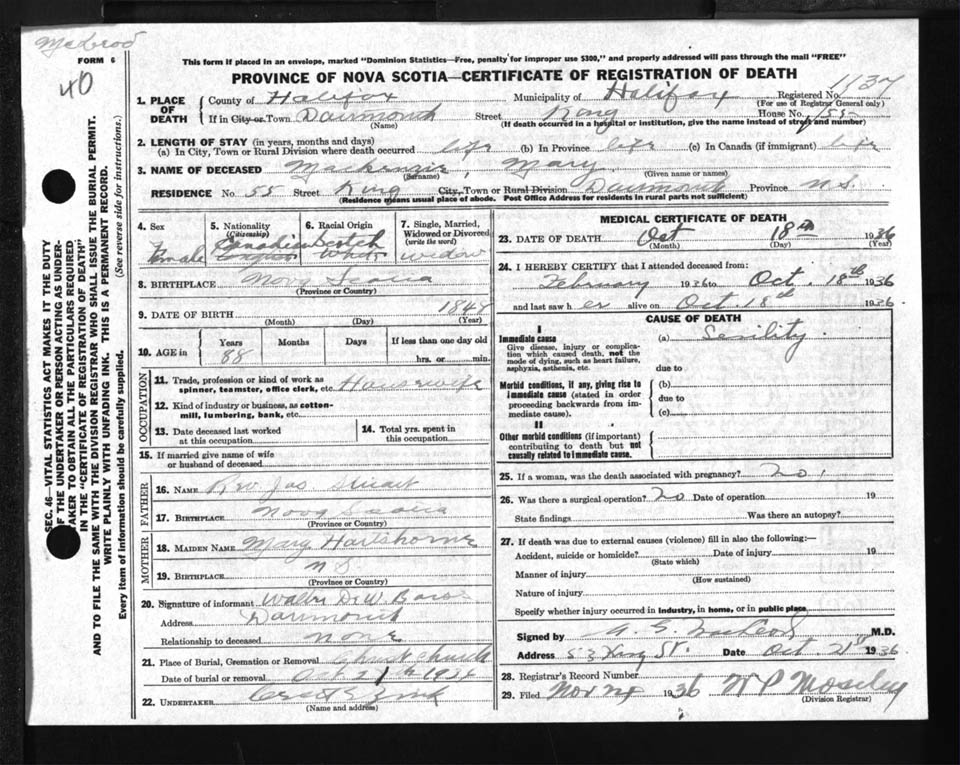 McLeod
FORM 6
40
This form if placed in an envelope, marked "Dominion Statistics—Free, penalty for improper use $300," and properly addressed will pass through the mail "FREE"
PROVINCE OF NOVA SCOTIA—CERTIFICATE OF REGISTRATION OF DEATH
1137
1. PLACE OF DEATH County of Halifax Municipality of Halifax Registered No.
(For use of Registrar General only)
If in City or Town Dartmouth Street King House No. 55
(Name) (If death occurred in a hospital or institution, give the name instead of street and number)
2. LENGTH OF STAY (in years, months and days)
(a) In City, Town or Rural Division where death occurred life (b) In Province life (c) In Canada (if immigrant) life
3. NAME OF DECEASED Mackenzie, Mary
(Surname) (Given name or names)
RESIDENCE No. 55 Street King City, Town or Rural Division Dartmouth Province N.S.
(Residence means usual place of abode. Post Office Address for residents in rural parts not sufficient)
4. Sex 5. Nationality (Citizenship) 6. Racial Origin 7. Single, Married, Widowed or Divorced (write the word)
Female Canadian English Scotch White widow
8. BIRTHPLACE Nova Scotia
(Province or Country)
9. DATE OF BIRTH 1848
(Month) (Day) (Year)
10. AGE in Years Months Days If less than one day old
88 hrs. or min.
OCCUPATION
11. Trade, profession or kind of work as spinner, teamster, office clerk, etc. Housewife
12. Kind of industry or business, as cotton-mill, lumbering, bank, etc.
13. Date deceased last worked at this occupation
14. Total yrs. spent in this occupation
15. If married give name of wife or husband of deceased
FATHER
16. NAME Rev Jas Stuart
17. BIRTHPLACE Nova Scotia
(Province or Country)
MOTHER
18. MAIDEN NAME Mary Hartshorne
19. BIRTHPLACE N S
(Province or Country)
20. Signature of informant Walter D. W.
Address Dartmouth
Relationship to deceased none
21. Place of Burial, Cremation or Removal Church
Date of burial or removal Oct 21
22. UNDERTAKER Zink
(Name and address)
MEDICAL CERTIFICATE OF DEATH
23. DATE OF DEATH Oct 18th 1936
(Month) (Day) (Year)
24. I HEREBY CERTIFY that I attended deceased from:
February 1936 to Oct. 18th 1936
and last saw her alive on Oct. 18th 1936
CAUSE OF DEATH
I
Immediate cause (a) Senility
Give disease, injury or complication which caused death, not the mode of dying, such as heart failure, asphyxia, asthenia, etc.
due to
Morbid conditions, if any, giving rise to immediate cause (stated in order proceeding backwards from immediate cause).
(b)
due to
(c)
II
Other morbid conditions (if important) contributing to death but not causally related to immediate cause.
25. If a woman, was the death associated with pregnancy? no.
26. Was there a surgical operation? no Date of operation 19
State findings Was there an autopsy?
27. If death was due to external causes (violence) fill in also the following:—
Accident, suicide or homicide? Date of injury 19
(State which)
Manner of injury
(How sustained)
Nature of injury
Specify whether injury occurred in industry, in home, or in public place
Signed by A. G. MacLeod M.D.
Address 53 King St. Date Oct. 21st 1936
28. Registrar's Record Number
29. Filed Nov 1936 W P Moseley
(Division Registrar)
SEC. 46—VITAL STATISTICS ACT MAKES IT THE DUTY
OF THE UNDERTAKER OR PERSON ACTING AS UNDER-
TAKER TO OBTAIN ALL THE PARTICULARS REQUIRED
IN THE "CERTIFICATE OF REGISTRATION OF DEATH"
AND TO FILE THE SAME WITH THE DIVISION REGISTRAR WHO SHALL ISSUE THE BURIAL PERMIT.
WRITE PLAINLY WITH UNFADING INK. THIS IS A PERMANENT RECORD.
Every item of information should be carefully supplied. (See reverse side for instructions.)